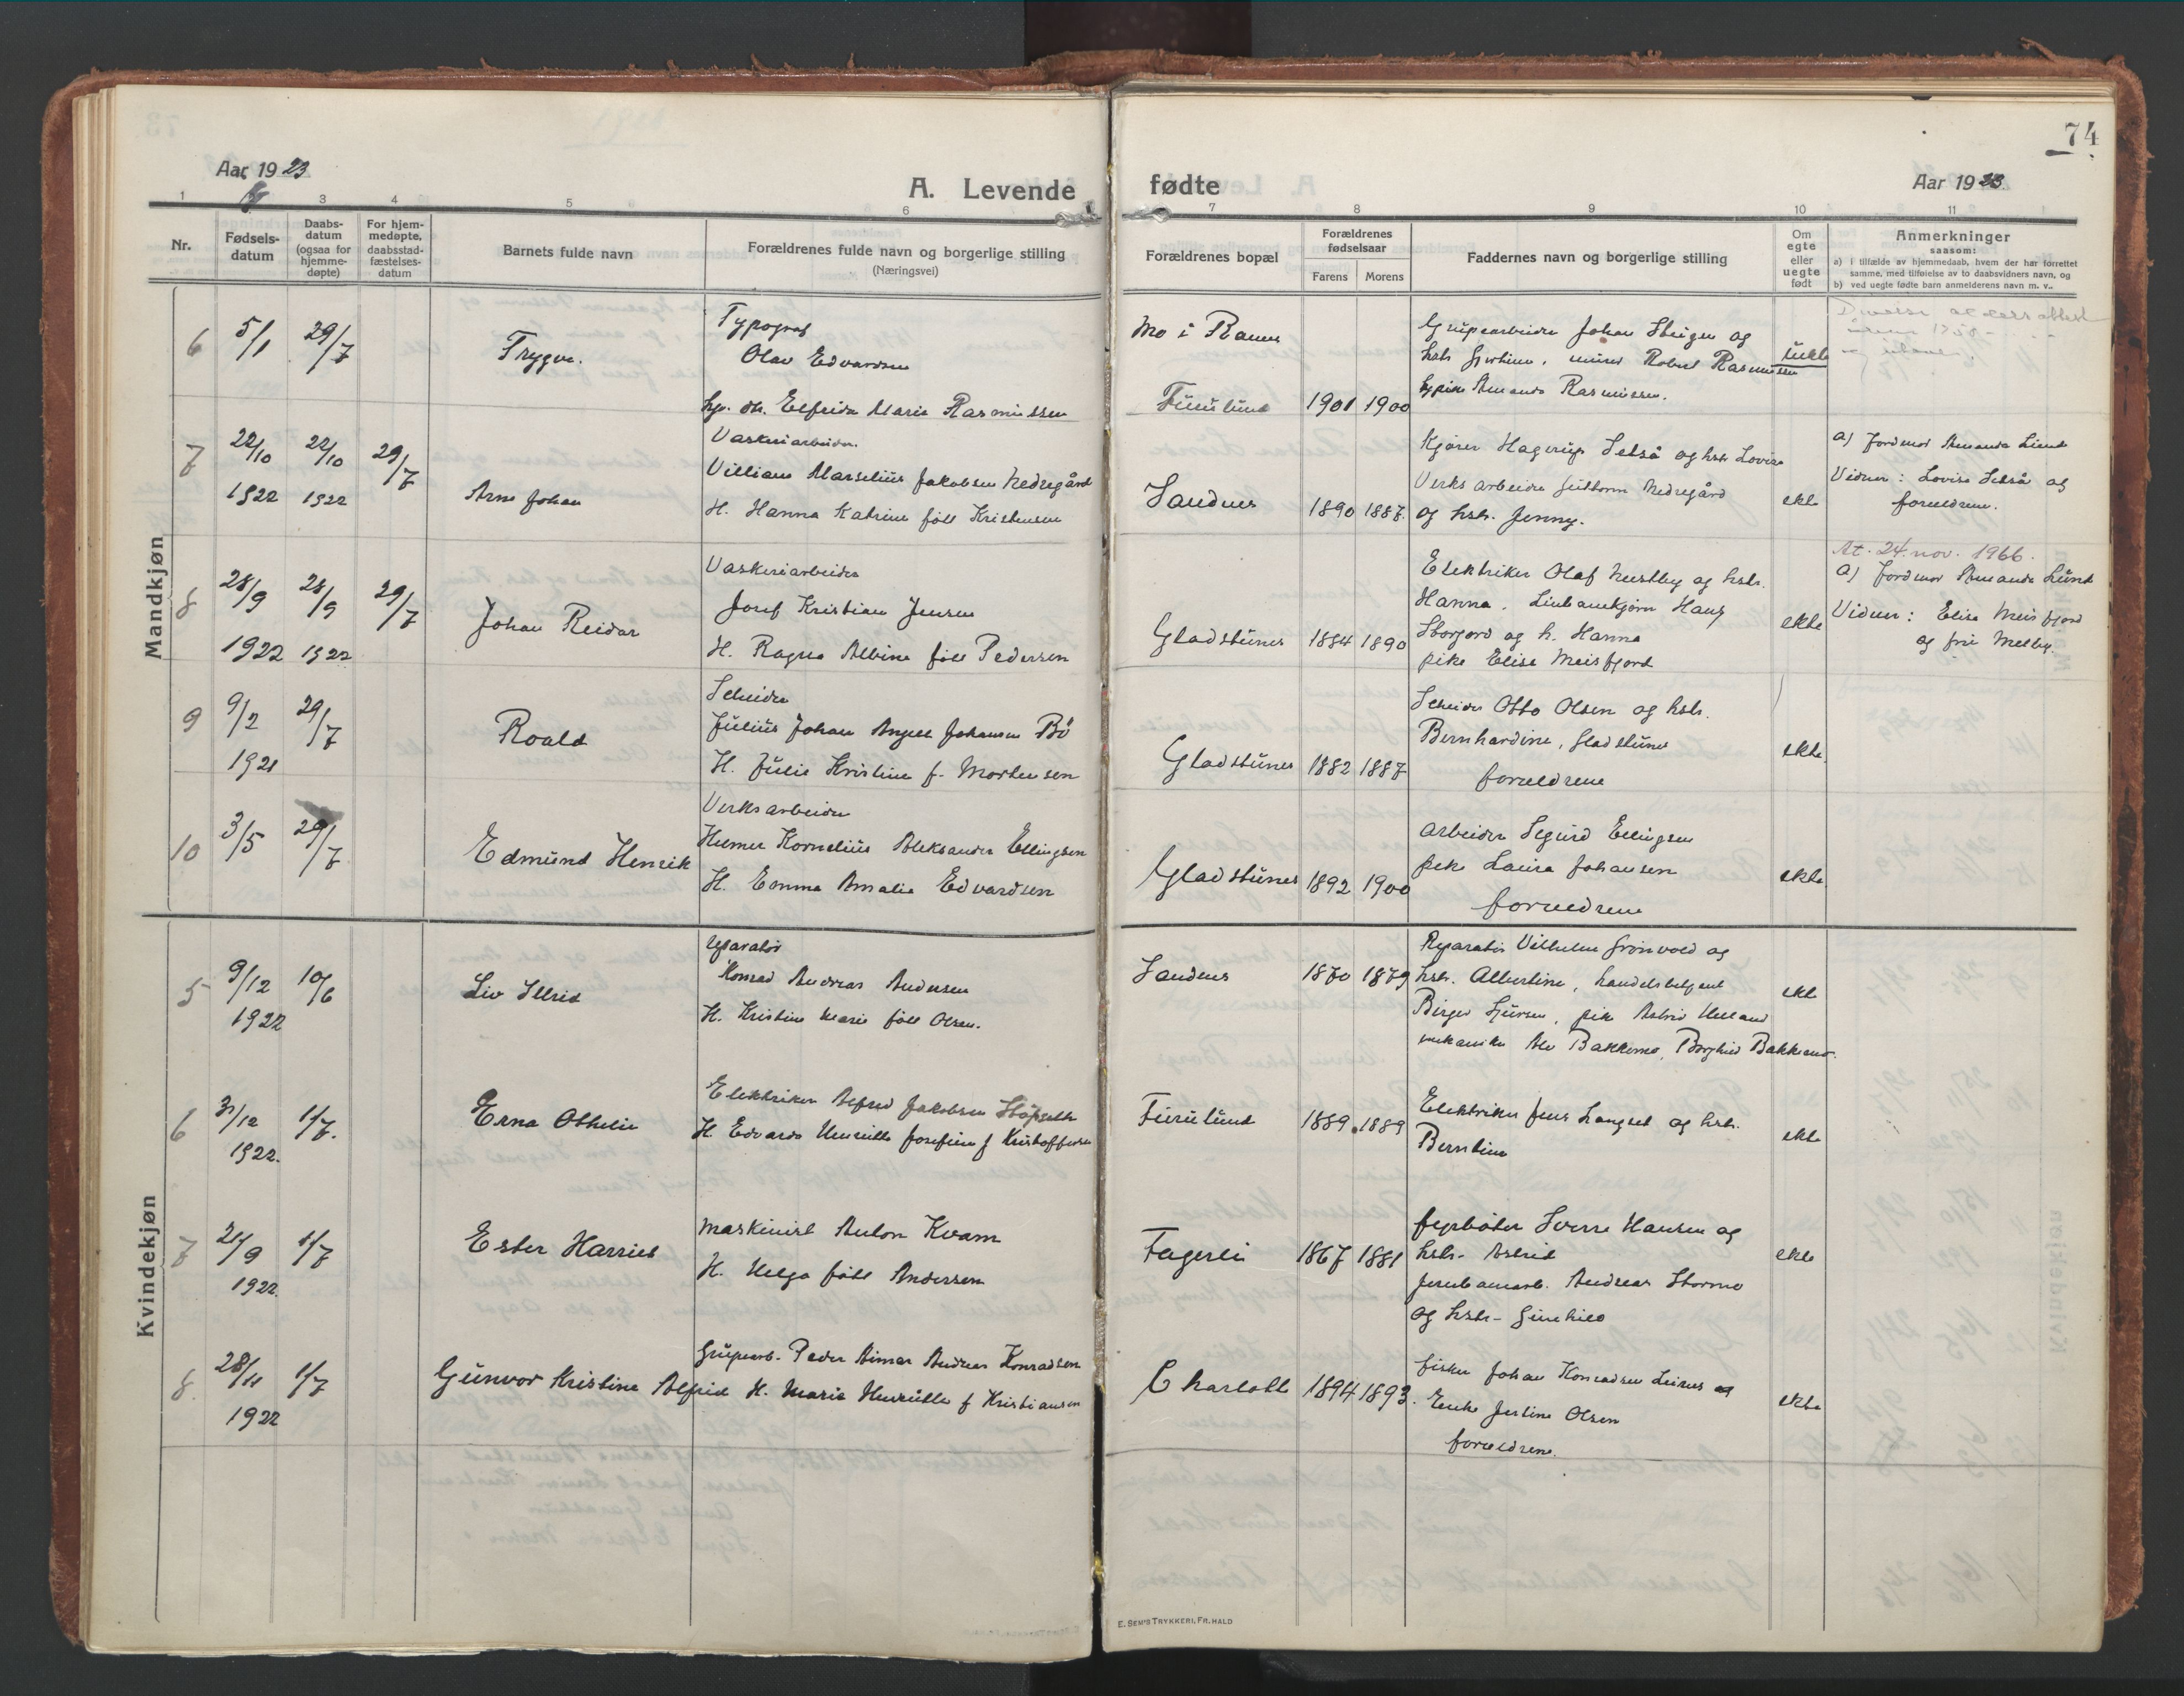 74
Aar 1923
A. Levende fødte
Aar 1923
1 3 4 5 6 7 8 9 10 11
Nr.
Fødsels-
datum
Daabs-
datum
(ogsaa for
hjemme-
døpte)
For hjem-
medøpte,
daabsstad-
fæstelses-
datum
Barnets fulde navn
Forældrenes fulde navn og borgerlige stilling
(Næringsvei)
Forældrenes bopæl
Forældrenes
fødselsaar
Farens Morens
Faddernes navn og borgerlige stilling
Om
egte
eller
uegte
født
Anmerkninger
saasom:
a) i tilfælde av hjemmedaab, hvem der har forrettet
samme, med tilføielse av to daabsvidners navn, og
b) ved uegte fødte barn anmelderens navn m. v.
Mandkjøn
6 5/1 29/7
Trygve.
Typograf
Olav Edvardsen
Elfrida Marie Rasmussen
Mo i Ranen
Furulund
1901 1900
Grupearbeider Johan og
hstr. Robert Rasmussen
pike Amanda Rasmussen.
uekte
7 22/10 1922 22/10 1922 29/7
Arne Johan
Vaskeriarbeider.
Villiam Marselius Jakobsen Nedregård
H. Hanna Katrine född Kristensen
Sandnes
1890 1887.
Kjører Hagerup Setså og hstr Lovise
Verksarbeider Guttorm Nedregård
og hstr. Jenny.
ekte
a) Jordmor Amanda Lund
Vidner: Lovise Setså og
foreldrene.
8 28/9 1922 28/9 1922 29/7
Johan Reidar
Vaskeriarbeider
Josef Kristian Jensen
H. Ragna Albine föd Pedersen
Gladstunes
1884 1890
Elektriker Olaf og hstr.
Hanna. Hans
Storjord og h. Hanna
pike Elise Meisfjord
ekte
At. 24. nov. 1966.
a) Jordmor Amanda Lund
Vidner: Elise Meisfjord
og fru Melby.
9 9/2 1921 29/7
Roald
Scheider
Julius Johan Angell Johansen Bö
H. Julie Kristine f. Mortensen
Gladstunes
1882 1887
Scheider Otto Olsen og hstr.
Bernhardine, Gladstunes
foreldrene
ekte
10 3/5 29/7
Edmund Henrik
Verksarbeider
Hilmer Kornelius Aleksander Ellingsen
H. Emma Amalie Edvardsen
Gladstunes
1892 1900
arbeider Sigurd Ellingsen
pike Laura Johansen
foreldrene
ekte
Kvindekjøn
5 9/12 1922 10/6
Liv
reparatör
Konrad Andreas Andersen
H. Kristine Marie född Olsen.
Sandnes
1870 1879
Reparatör Vilhelm Grönvold og
hstr. Albertine, handelsbetjent
Birger, pike Astrid
mekaniker
ekte
6 31/12 1922. 1/7.
Erna Othelie
Elektriker Alfred Jakobsen
H. Edvarda Henriette Josefine f Kristoffersen
Furulund
1889 1889
Elektriker Jens Langset og hstr.
Berntine
ekte
7 21/9 1922 1/7
Ester Harriet
Maskinist Anton Kvam
H. Helga född Andersen
Fagerli
1867 1881
fyrböter Sverre Hansen og
hstr. Astrid
Jernbanearb. Andreas Stormo
og hstr. Gunhild
ekte
8. 28/11 1922 1/7
Gunvor Kristine Alfrid
Grupearb. Peder Andreas Konradsen
H. Marie Henriette f Kristiansen
Charlotte
1894 1893.
fisker Johan Konradsen og
Enke Jertine Olsen
foreldrene.
ekte
E. SEM'S TRYKKERI, FR.HALD